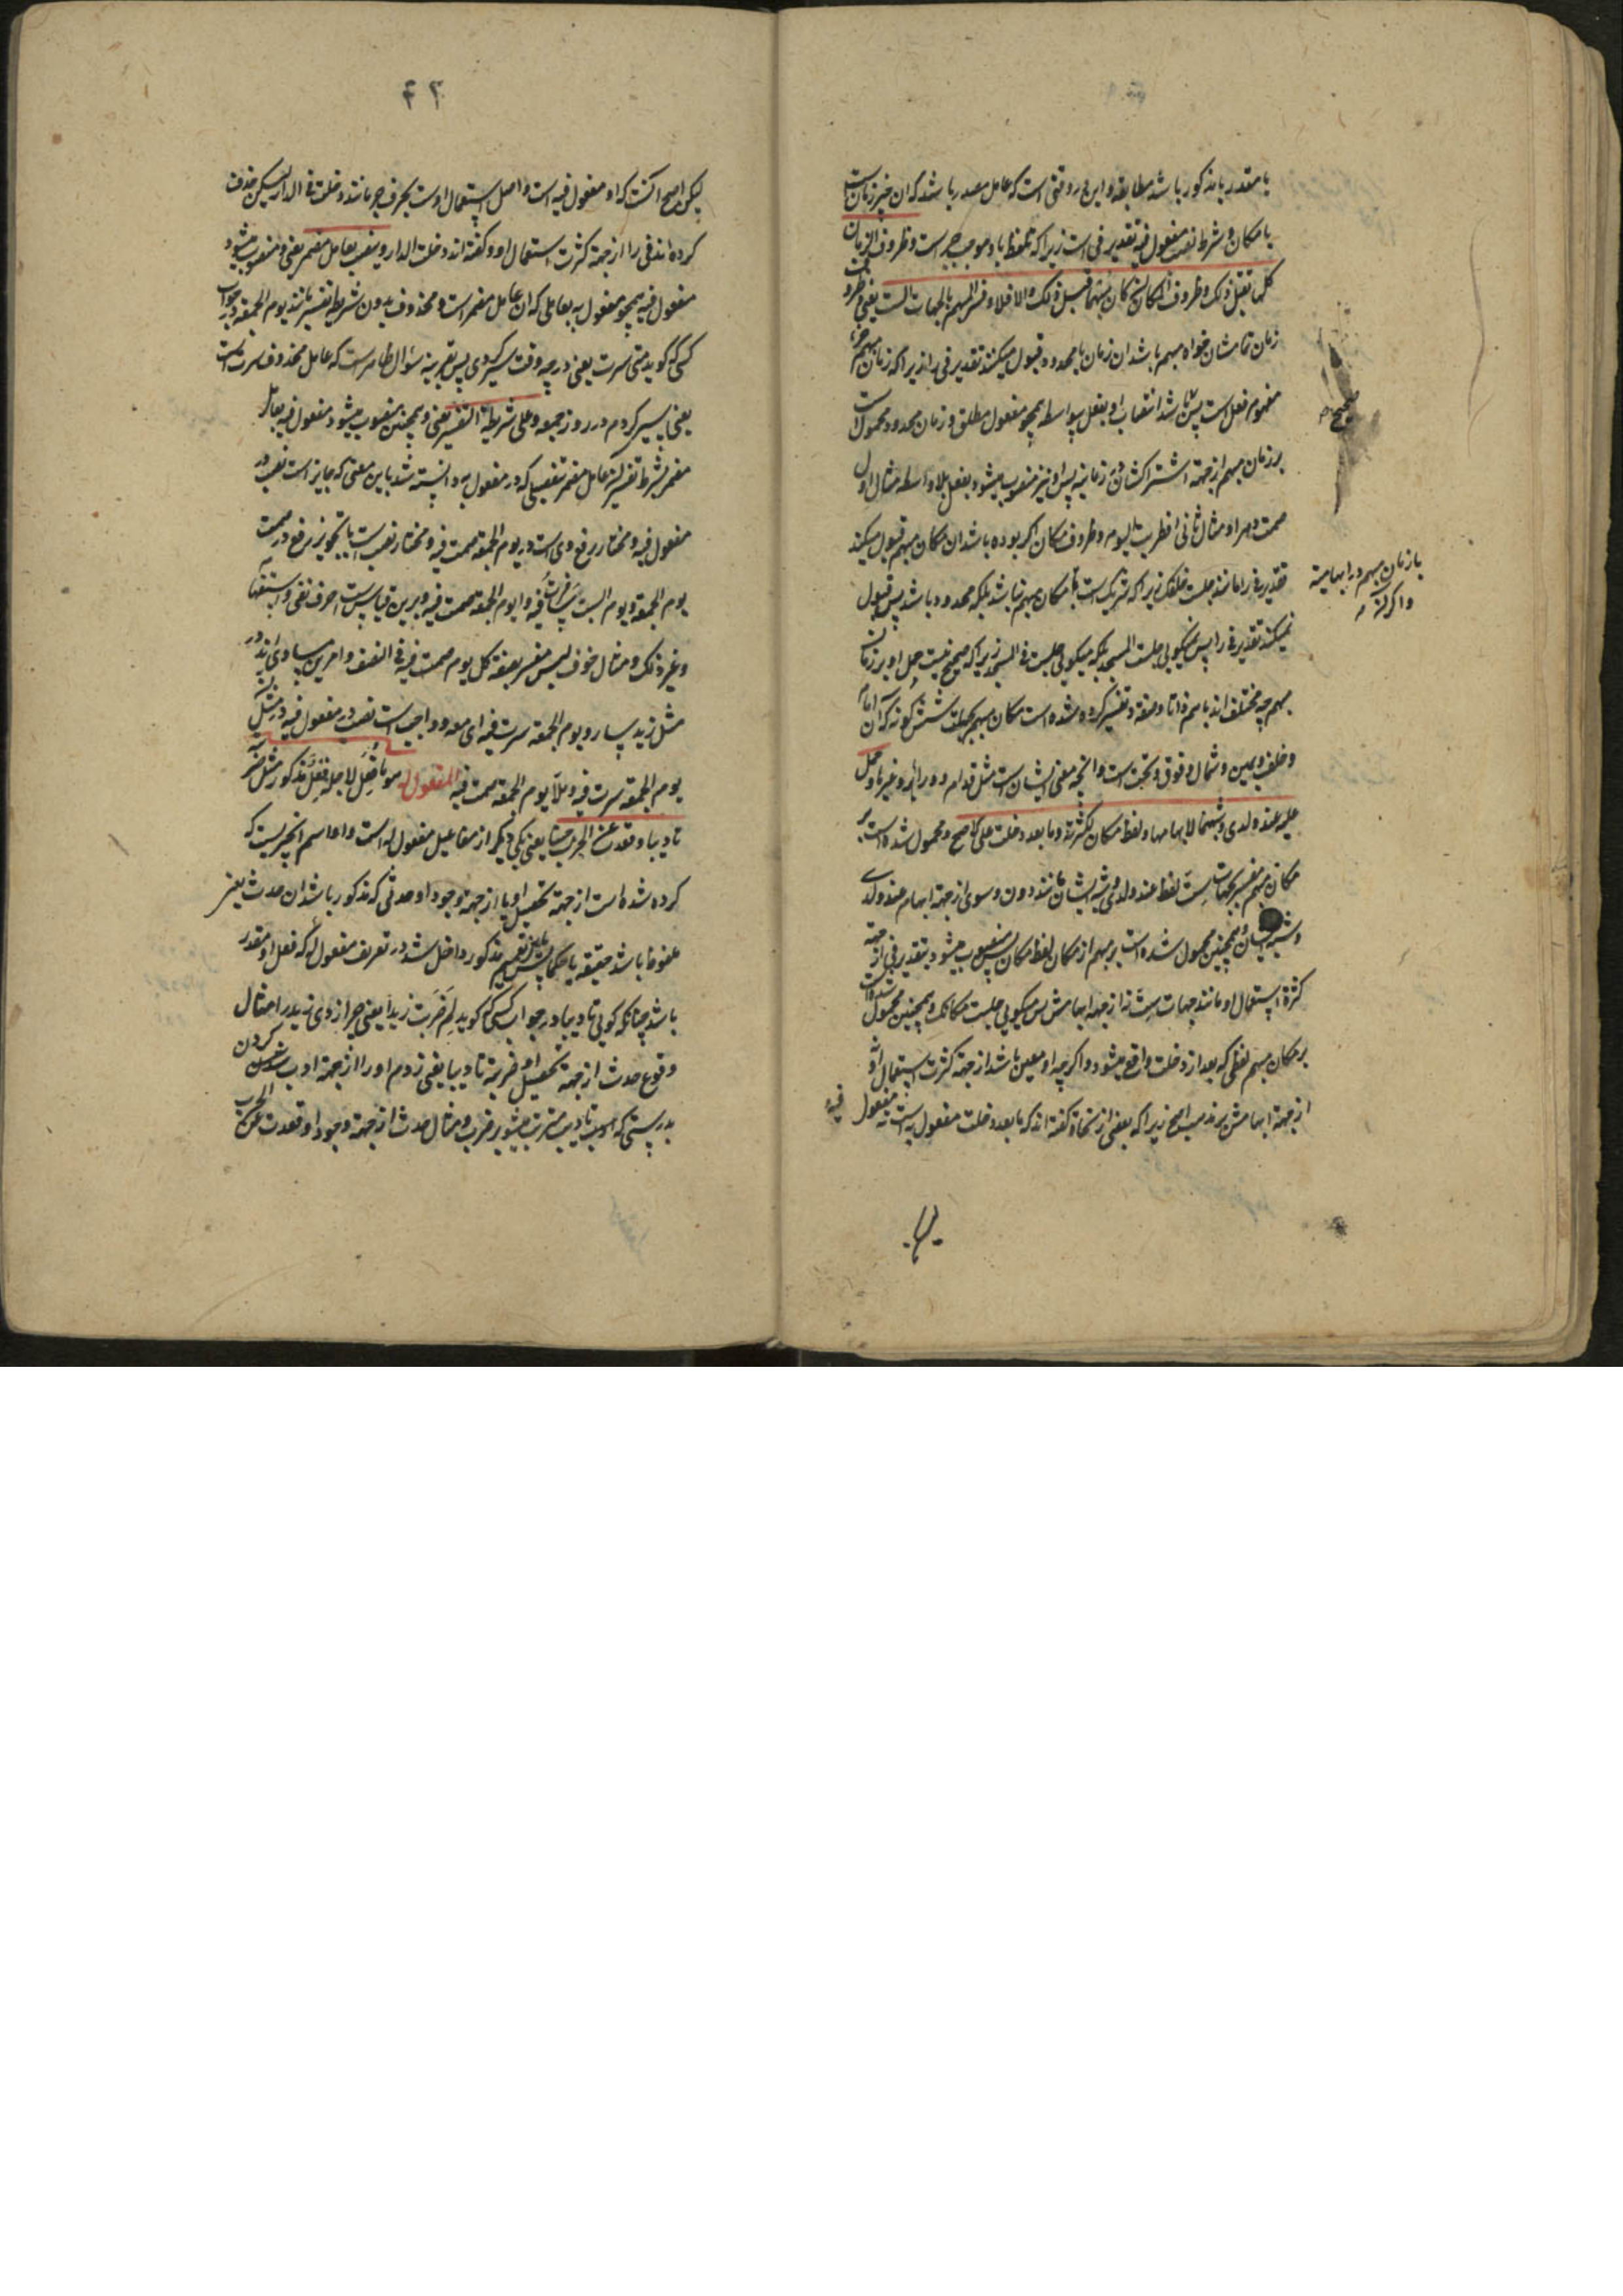 یا مقدر یا مذکور باشد مطابقه و این در وقتی است که عامل مصدر باشد که ان غیر زمان است
یا مکان و شرط نصب مفعول فیه تقدیر فی است زیراکه تلفظ باو موجب جر است و ظروف الزمان
کلها تقبل ذلک و ظروف المکان ان کان مبهما قبل ذلک و الا فلا و فسر المبهم بالجهات الست یعنی ظروف
زمان تمامشان خواه مبهم باشد ان زمان یا محدود قبول میکند تقدیر فی را زیراکه زمان مبهم جزء
مفهوم فعل است پس باشد انتصاب او بفعل بیواسطه همچو مفعول مطلق و زمان محدود محمول است
بر زمان مبهم از جهة اشتراکشان در زمانیه پس او نیز منصوب میشود بفعل بلا واسطه مثال اول
صمت دهرا و مثال ثانی افطرت الیوم و ظروف مکان اگر بوده باشد ان مکان مبهم قبول میکند
تقدیر فی را مانند جلست خلفک زیراکه شریک است با مکان مبهم نباشد بلکه محدود باشد پس قبول
نمیکند تقدیر فی را پس نمیگویی جلست المسجد بلکه میگویی جلست فی المسجد زیراکه صحیح نیست حمل او بر زمان
مبهم چه مختلف اند باسم ذاتا و صفة و تفسیر کرده شده است مکان مبهم بجهات شش گونه که ان امام
و خلف و یمین و شمال و فوق و تحت است و انچه معنی ایشان است مثل قدام و وراء و غیرها و حمل
علیه عند و لدی و شبههما لابهامهما و لفظ مکان لکثرته و ما بعد دخلت علی الاصح و محمول شده است بر
مکان مبهم مفسر بجهات ست لفظ عند و لدی و شبه ایشان مانند دون و سوی از جهة ابهام عند و لدی
و شبه ایشان و همچنین محمول شده است بر مبهم از مکان لفظ مکان پس منصوب میشود بتقدیر فی از جهة
کثرة استعمال او مانند جهات ست نه از جهة ابهامش پس میگویی جلست مکانک و همچنین محمول شده است
بر مکان مبهم لفظی که بعد از دخلت واقع میشود و اگرچه او معین باشد از جهة کثرت استعمال او نه
از جهة ابهامش بر مذهب اصح زیراکه بعضی از نحاة گفته اند که ما بعد دخلت مفعول به است نه مفعول فیه
صحیح
با زمان مبهم در ابهامیة
و اگر نه
لیکن اصح انست که او مفعول فیه است و اصل استعمال او است بحرف جر مانند دخلت فی الدار لیکن حذف
کرده اند فی را از جهة کثرت استعمال او و گفته اند دخلت الدار و ینصب بعامل مضمر یعنی و منصوب میشود
مفعول فیه همچو مفعول به بعاملی که ان عامل مضمر است و محذوف بدون شریطه تفسیر مانند یوم الجمعة در جواب
کسی که گوید متی سرت یعنی در چه وقت سیر کردی پس بقرینه سؤال ظاهر است که عامل محذوف سرت است
یعنی سیر کردم در روز جمعه و علی شریطة التفسیر یعنی و همچنین منصوب میشود مفعول فیه بعامل
مضمر بشرط تفسیر ان عامل مضمر بتفصیلی که در مفعول به دانسته شد باین معنی که جایز است نصب در
مفعول فیه و مختار رفع وی است در یوم الجمعة صمت فیه و مختار نصب است با تجویز رفع در صمت
یوم الجمعة و یوم السبت سافرت فیه و ایوم الجمعة صمت فیه و برین قیاس است حرف نفی و استفهام
و غیر ذلک و مثال خوف لبس مفسر بصفة کل یوم صمت فیه فی الصیف و امرین مساوی اند در
مثل زید سار و یوم الجمعة سرت فیه ای معه و واجب است نصب در مفعول فیه در مثل ان
یوم الجمعة سرت فیه و هلا یوم الجمعة صمت فیه المفعول له هو ما فعل لاجله فعل مذکور مثل ضربته
تادیبا و قعدت عن الحرب جبنا یعنی یکی دیگر از مفاعیل مفعول له است و او اسم انچیزیست که
کرده شده است از جهة تحصیل او یا از جهة وجود او حدثی که مذکور باشد ان حدث یعنی
ملفوظ باشد حقیقة یا حکما پس باین تعمیم مذکور داخل شد در تعریف مفعول له که فعل او مقدر
باشد چنانکه گویی تادیبا در جواب کسی که گوید لم ضربت زیدا یعنی چرا زدی زید را مثال
وقوع حدث از جهة تحصیل او ضربته تادیبا یعنی زدم او را از جهة ادب کردن
بدرستی که ادب تادیب مترتب میشود بر ضرب و مثال حدث از جهة وجود او قعدت عن الحرب